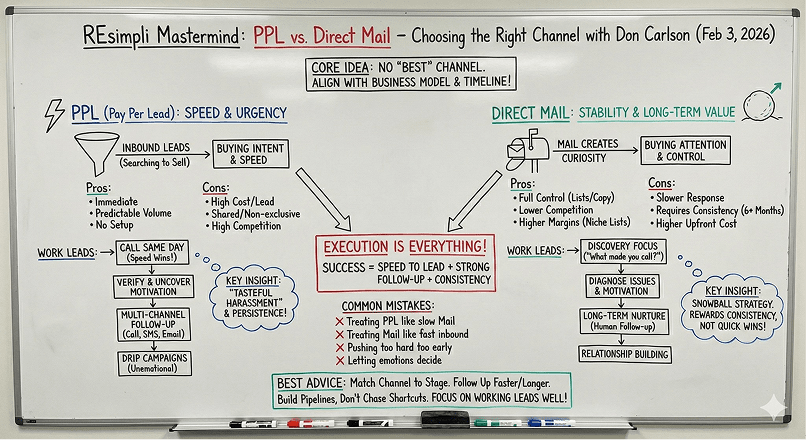 REsimpli Mastermind: PPL vs. Direct Mail – Choosing the Right Channel with Don Carlson (Feb 3, 2026)
CORE IDEA: NO "BEST" CHANNEL.
ALIGN WITH BUSINESS MODEL & TIMELINE!
PPL (Pay Per Lead): SPEED & URGENCY
INBOUND LEADS
(Searching to Sell)
BUYING INTENT
& SPEED
Pros:
• Immediate
• Predictable Volume
• No Setup
Cons:
• High Cost/Lead
• Shared/Non-exclusive
• High Competition
WORK LEADS:
CALL SAME DAY
(Speed Wins!)
VERIFY & UNCOVER
MOTIVATION
MULTI-CHANNEL
FOLLOW-UP
(Call, SMS, Email)
DRIP CAMPAIGNS
(Unemotional)
KEY INSIGHT:
"TASTEFUL
HARASSMENT"
& PERSISTENCE!
EXECUTION IS EVERYTHING!
SUCCESS = SPEED TO LEAD + STRONG
FOLLOW-UP + CONSISTENCY
COMMON MISTAKES:
✗ Treating PPL like slow Mail
✗ Treating Mail like fast inbound
✗ Pushing too hard too early
✗ Letting emotions decide
DIRECT MAIL: STABILITY & LONG-TERM VALUE
MAIL CREATES
CURIOSITY
BUYING ATTENTION
& CONTROL
Pros:
• Full Control (Lists/Copy)
• Lower Competition
• Higher Margins (Niche Lists)
Cons:
• Slower Response
• Requires Consistency (6+ Months)
• Higher Upfront Cost
WORK LEADS:
DISCOVERY FOCUS
("What made you call?")
DIAGNOSE ISSUES
& MOTIVATION
LONG-TERM NURTURE
(Human Follow-up)
RELATIONSHIP BUILDING
KEY INSIGHT:
SNOWBALL STRATEGY.
REWARDS CONSISTENCY,
NOT QUICK WINS!
BEST ADVICE: Match Channel to Stage. Follow Up Faster/Longer.
Build Pipelines, Don't Chase Shortcuts. FOCUS ON WORKING LEADS WELL!